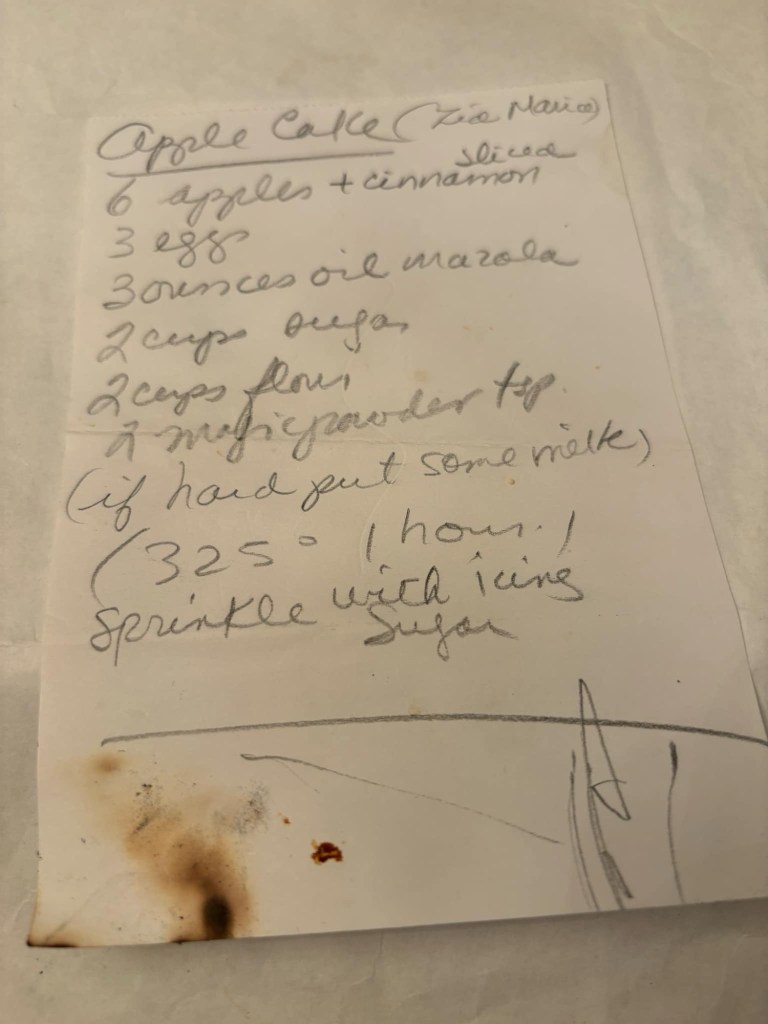 Apple Cake (Zia Maria)
sliced
6 apples + cinnamon
3 eggs
3 ounces oil mazola
2 cups sugar
2 cups flour
2 magic powder tsp.
(if hard put some milk)
(325° 1 hour.)
Sprinkle with icing
Sugar